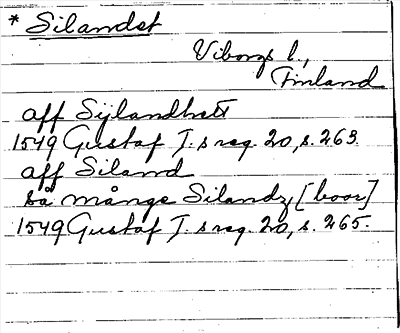 * Silandet
Viborgs l.,
Finland
aff Sijlandhett
1549 Gustaf I.s reg. 20, s. 263.
aff Siland
så månge Silandz, [boor]
1549 Gustaf I.s reg. 20, s. 265.